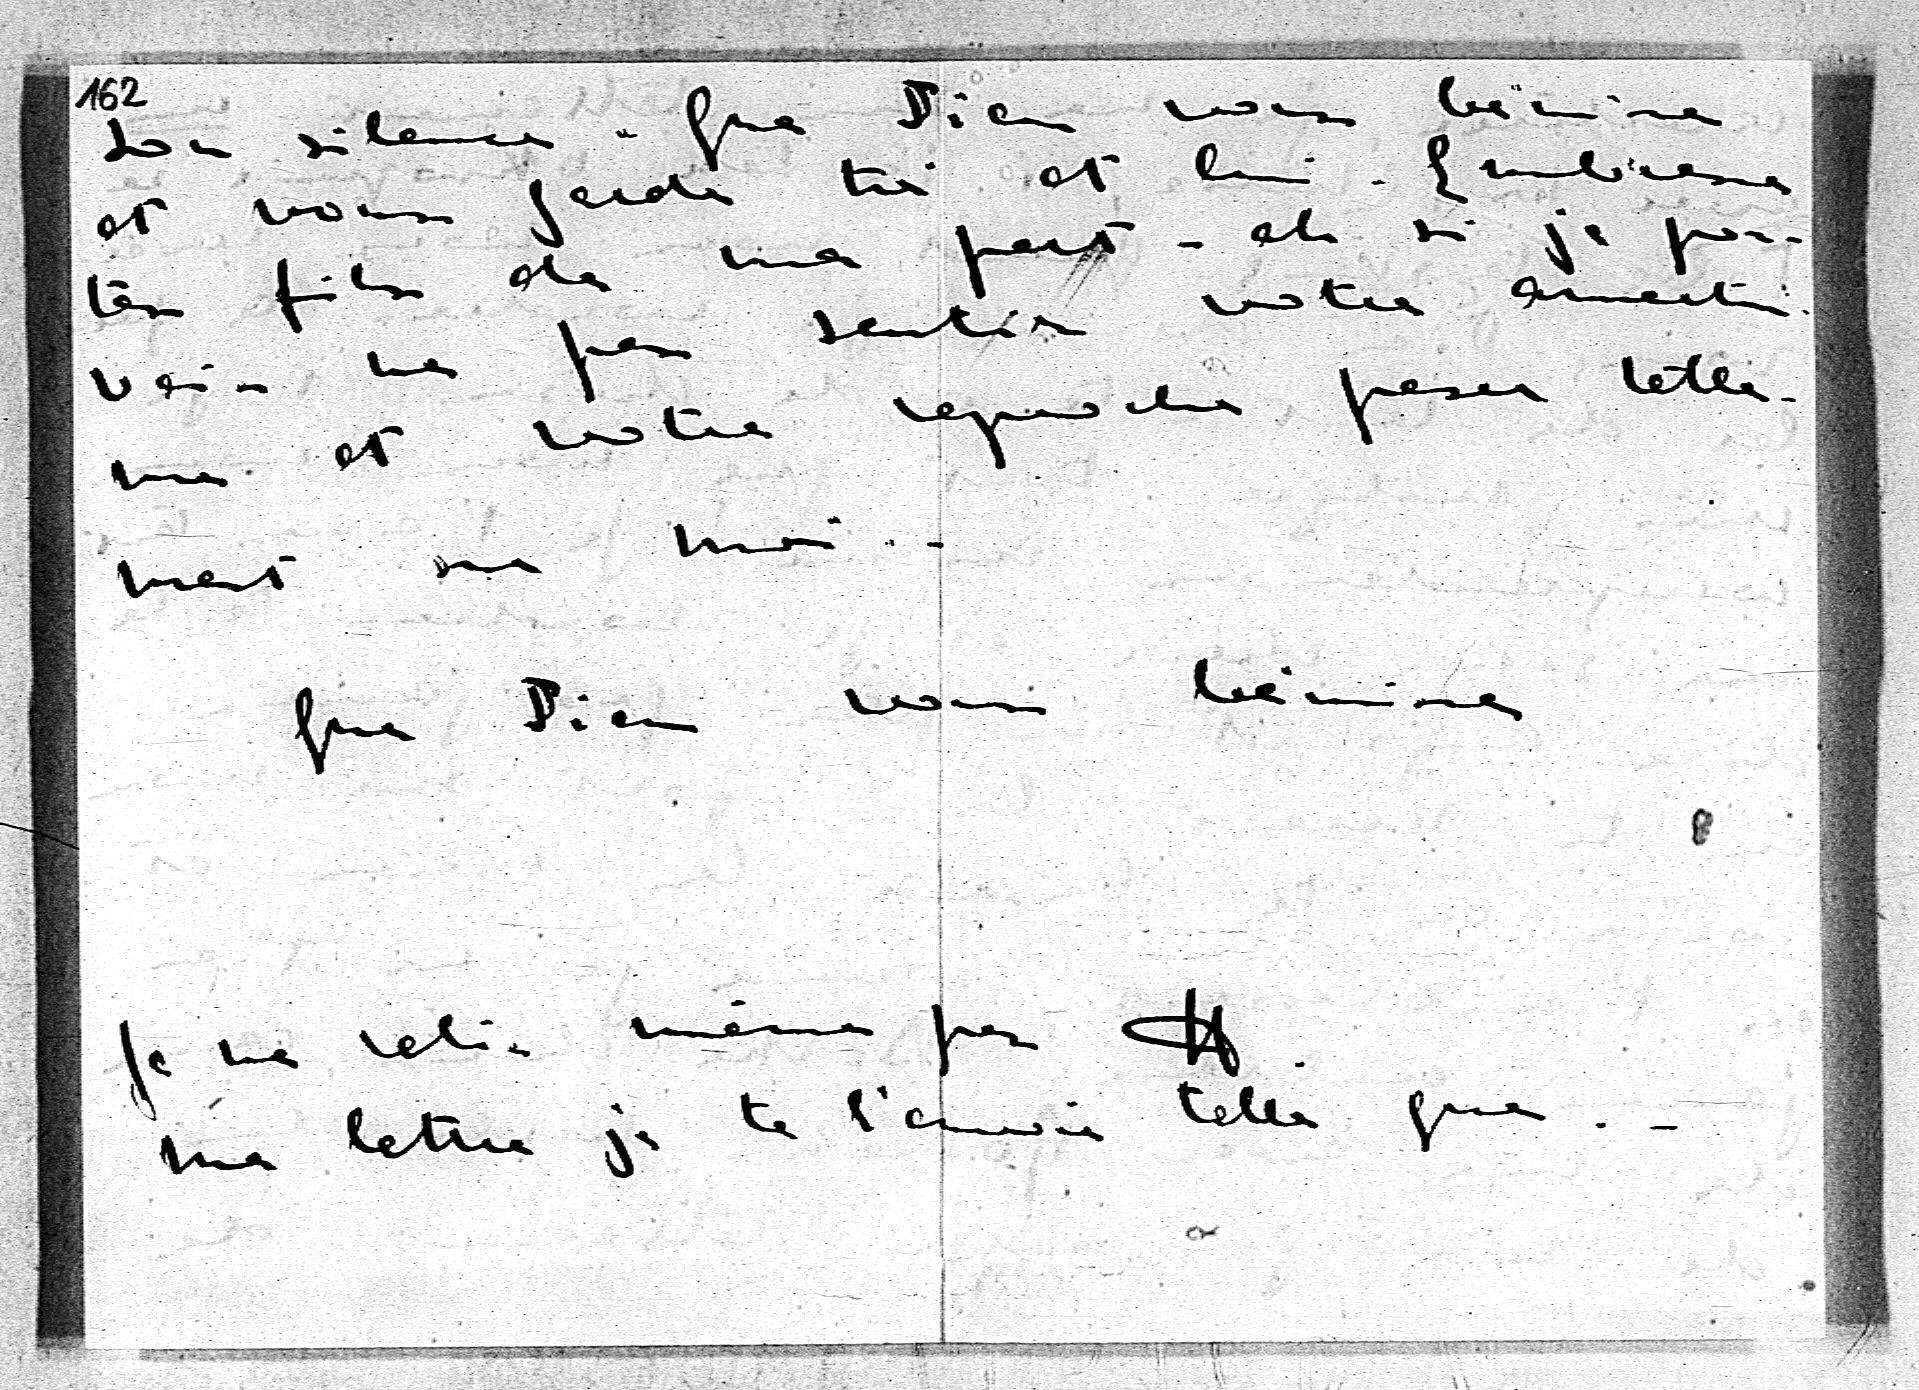 162
son silence - Que Dieu vous bénisse
et vous garde toi et lui. Embrasse
tes fils de ma part - ah si je pou-
vais ne pas sentir votre amertu-
me et votre reproche peser telle-
ment sur moi . -
Que Dieu vous bénisse
Je ne relis même pas
ma lettre je te l'envoie telle que . -